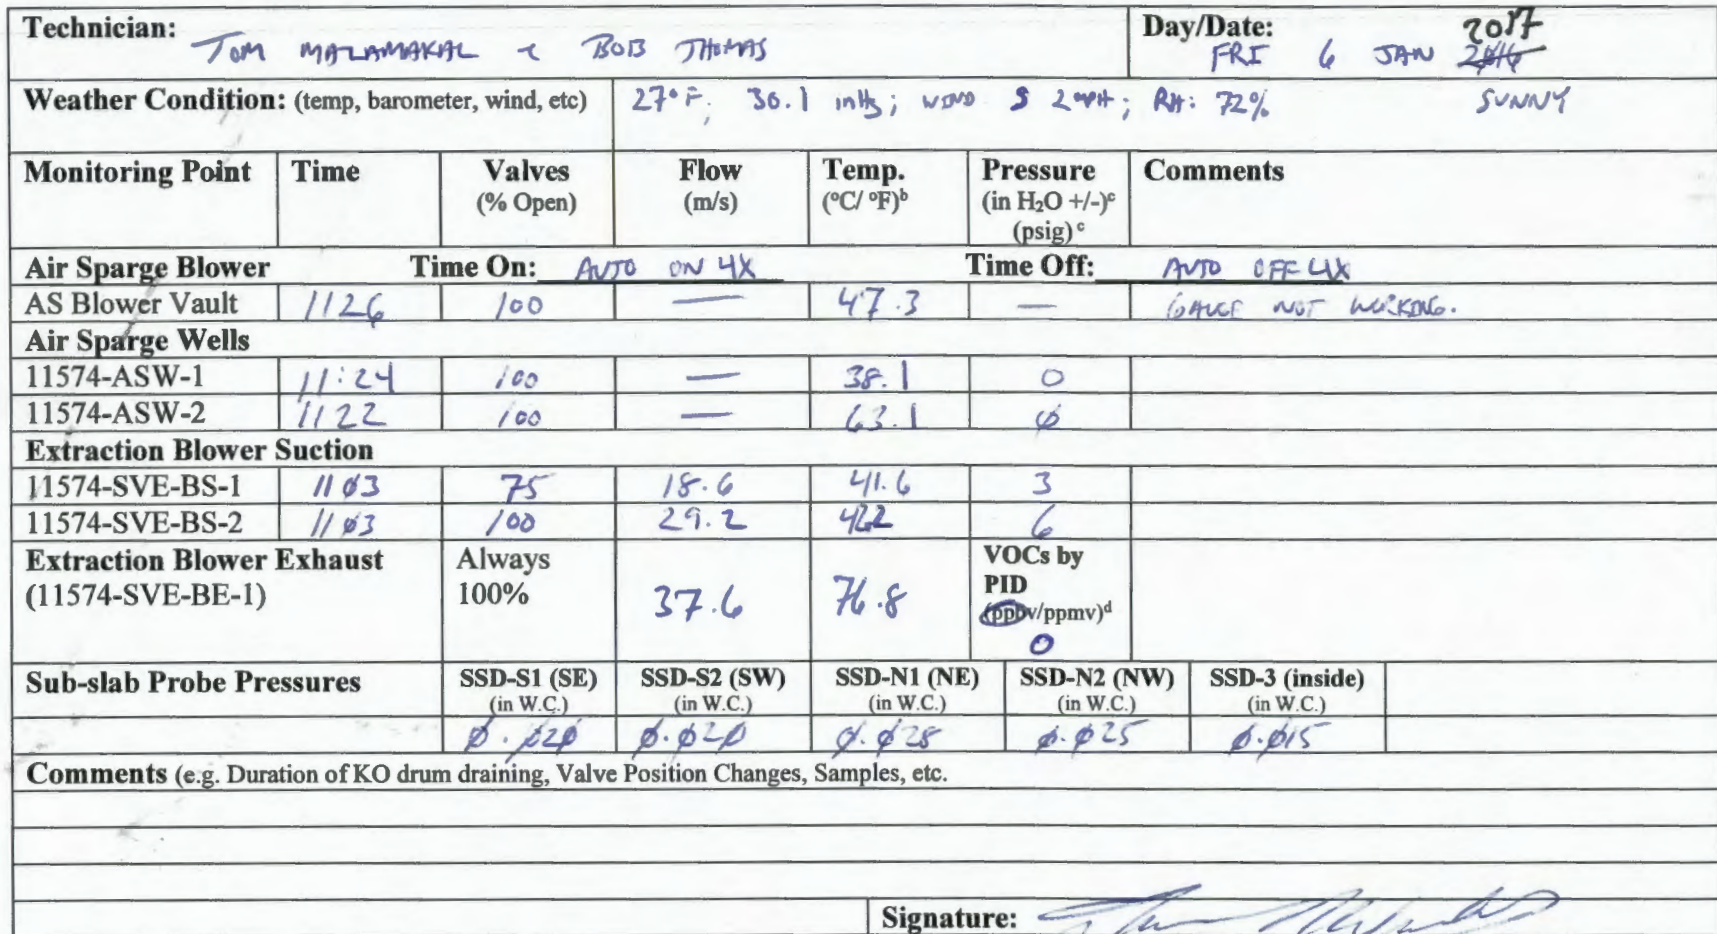 Technician: Day/Date: 2017
TOM MALAMAKAL & BOB THOMAS FRI 6 JAN 2016
Weather Condition: (temp, barometer, wind, etc) 27°F; 30.1 inHg; WIND S 2 MPH; RH: 72% SUNNY
Monitoring Point Time Valves Flow Temp. Pressure Comments
(% Open) (m/s) (°C/ °F)b (in H2O +/-)c
(psig) c
Air Sparge Blower Time On: AUTO ON 4X Time Off: AUTO OFF 4X
AS Blower Vault 1126 100 — 47.3 — GAUGE NOT WORKING.
Air Sparge Wells
11574-ASW-1 11:24 100 — 38.1 0
11574-ASW-2 1122 100 — 63.1 0
Extraction Blower Suction
11574-SVE-BS-1 1103 75 18.6 41.6 3
11574-SVE-BS-2 1103 100 29.2 6
Extraction Blower Exhaust Always VOCs by
(11574-SVE-BE-1) 100% 37.6 76.8 PID
(ppbv/ppmv)d
0
Sub-slab Probe Pressures SSD-S1 (SE) SSD-S2 (SW) SSD-N1 (NE) SSD-N2 (NW) SSD-3 (inside)
(in W.C.) (in W.C.) (in W.C.) (in W.C.) (in W.C.)
0.020 0.020 0.028 0.025 0.015
Comments (e.g. Duration of KO drum draining, Valve Position Changes, Samples, etc.
Signature: